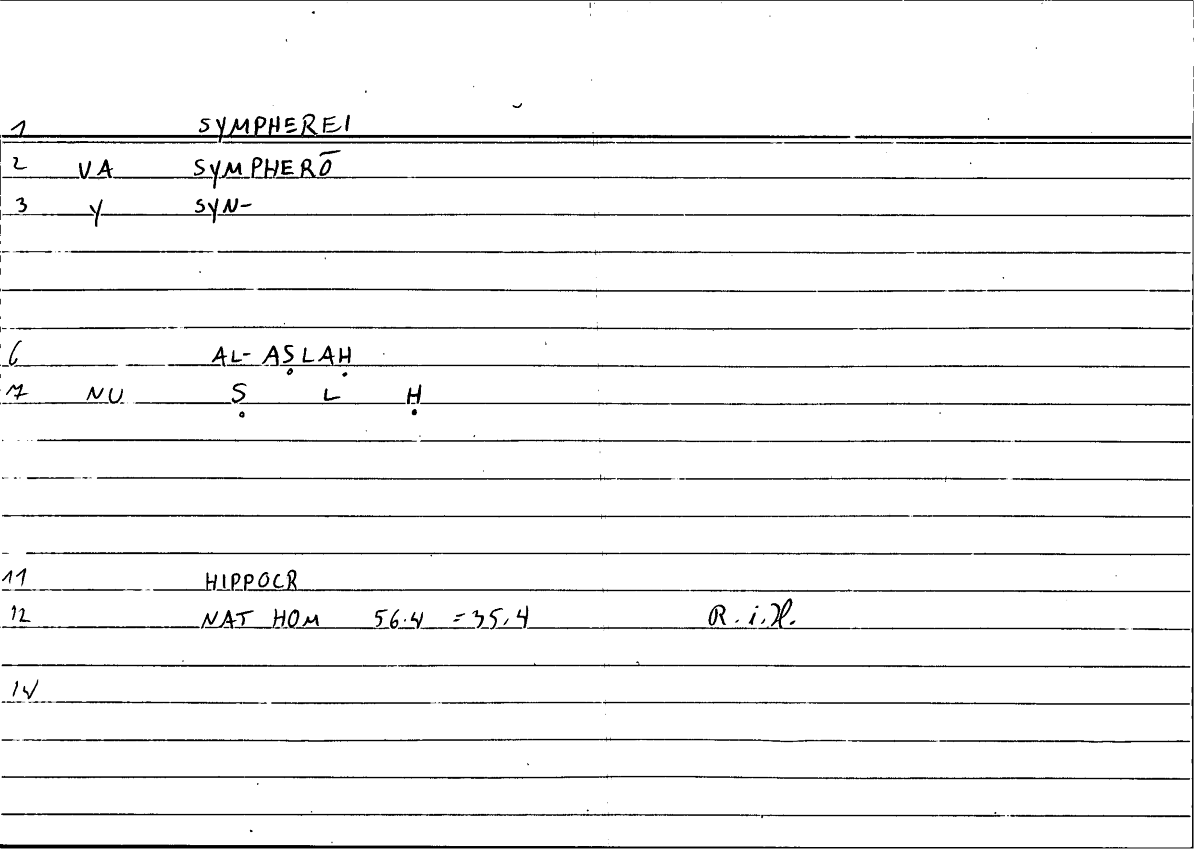 1 SYMPHEREI
2 VA SYMPHERŌ
3 Y SYN-
6 AL-AṢLAḤ
7 NU Ṣ L Ḥ
11 HIPPOCR
12 NAT HOM 56.4 = 35.4 R.i.H.
14